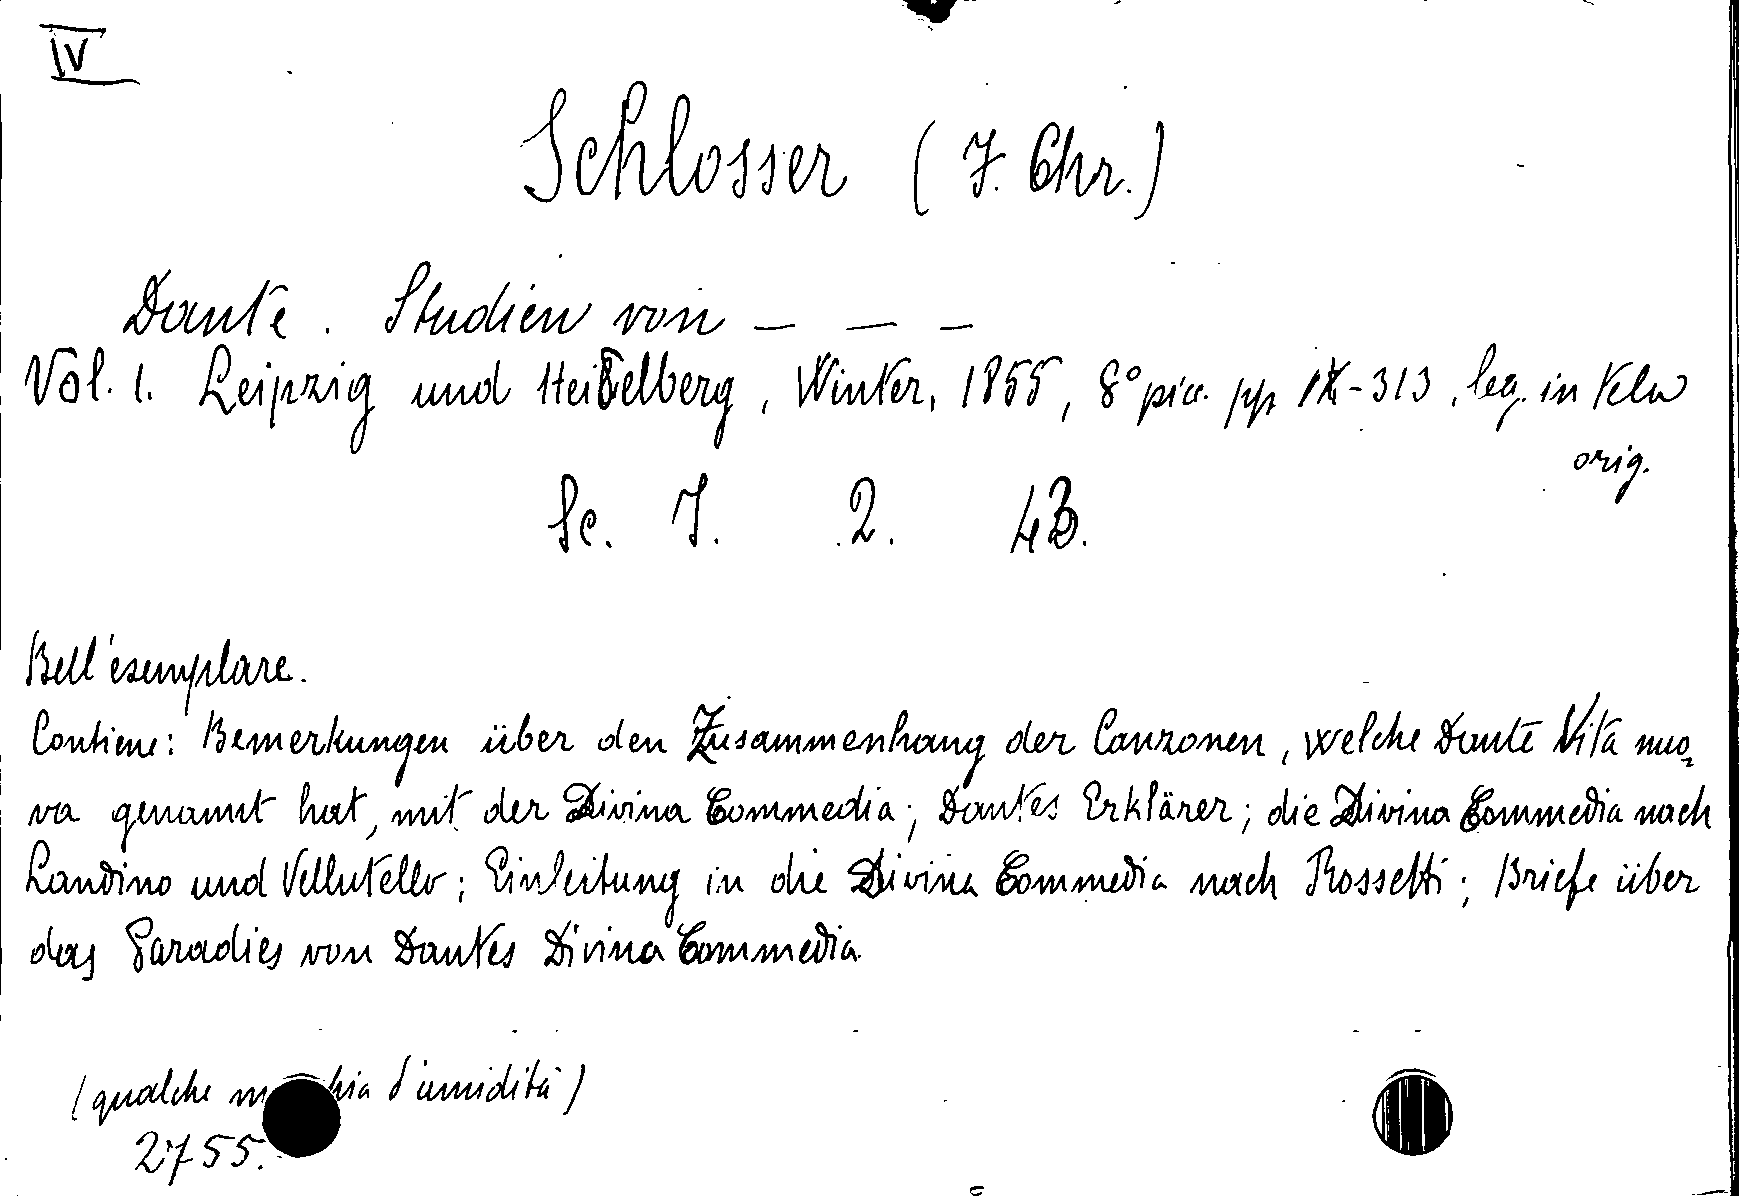 IV
Schlosser (J. Chr.)
Dante. Studien von – – –
Vol. 1. Leipzig und Heidelberg, Winter, 1855, 8° picc. pp IX-313, leg. in tela
orig.
Sc. I. 2. 43.
Bell'esemplare.
Contiene: Bemerkungen über den Zusammenhang der Canzonen, welche Dante Vita nuo-
va genannt hat, mit der Divina Commedia; Dantes Erklärer; die Divina Commedia nach
Landino und Vellutello; Einleitung in die Divina Commedia nach Rossetti; Briefe über
das Paradies von Dantes Divina Commedia
(qualche d'umidità)
2755.